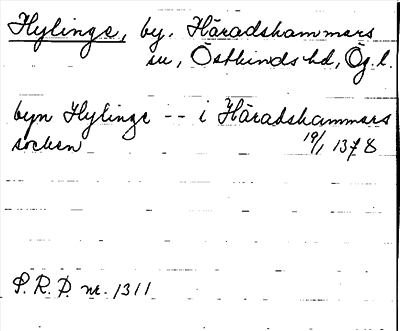 Hylinge, by. Häradshammars
su, Östkinds hd, Ög. l.
byn Hylinge -- i Häradshammars
socken 19/1 1378
P.R.P. nr. 1311